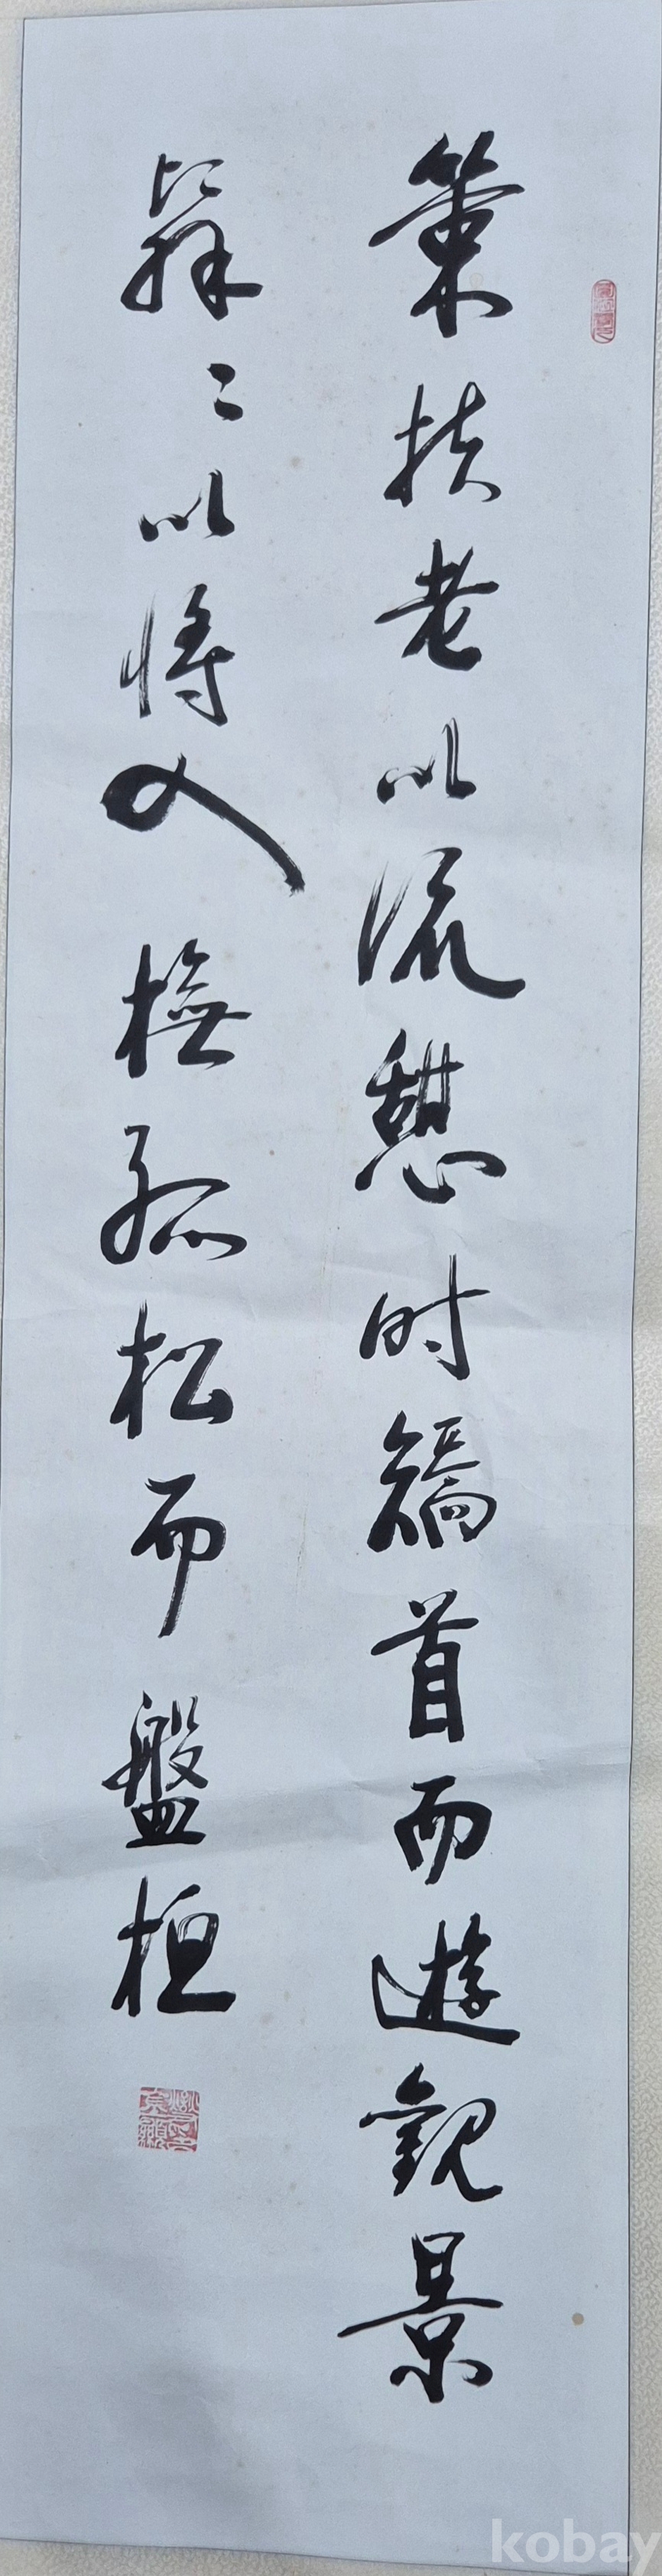 策扶老以流憩時矯首而遊觀景
翳〻以將入撫孤松而盤桓
kobay